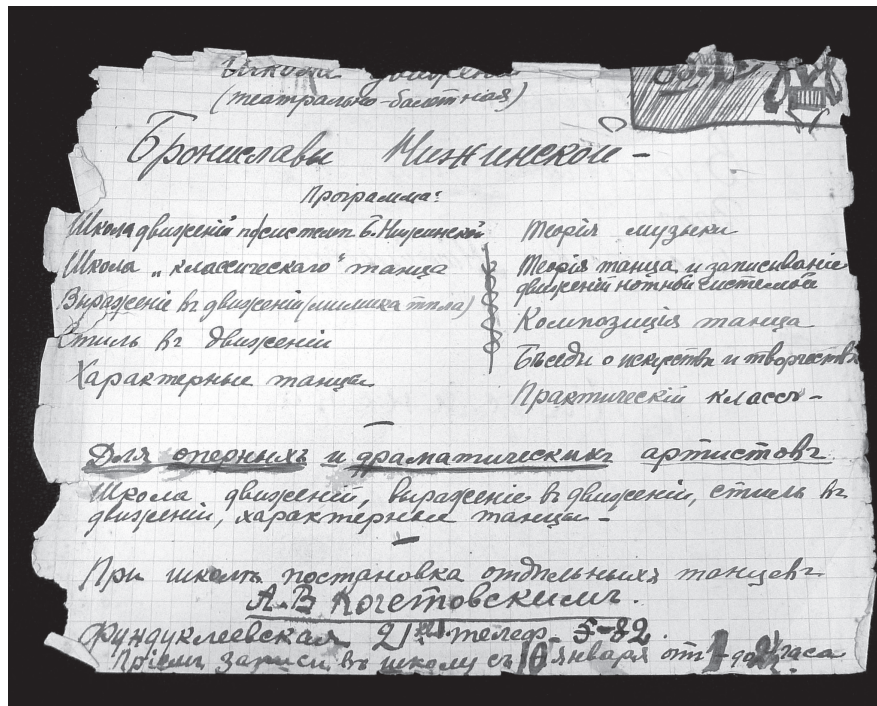 Школа движеній
(театрально-балетная)
Брониславы Нижинской –
Программа:
Школа движеній по системѣ Б. Нижинской
Школа „классическаго“ танца
Выраженіе въ движеніи (мимика тѣла)
Стиль въ движеніи
Характерные танцы
Теорія музыки
Теорія танца и записываніе
движеній нотной системой
Композиція танца
Бѣседы о искусствѣ и творчествѣ
Практическій классъ –
Для оперныхъ и драматическихъ артистовъ
Школа движеній, выраженіе въ движеніи, стиль въ
движеніи, характерные танцы –
При школѣ постановка отдѣльныхъ танцевъ
А. В Кочетовскимъ.
Фундуклеевская 21 телеф. 5-82.
Пріемъ записи въ школу съ 10 января отъ 1 до 2 часа